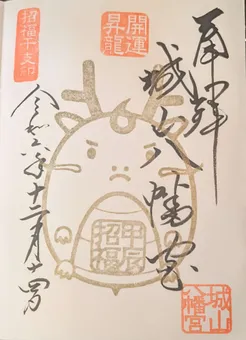 奉拝
開運
昇龍
城山八幡宮
招福干支印
甲辰
招福
令和六年十二月十四日
城山
八幡宮